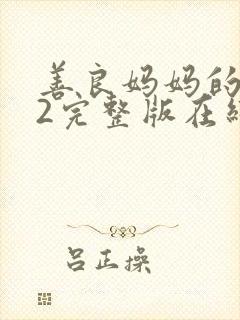 善良妈妈的
2完整版在线
吕正操